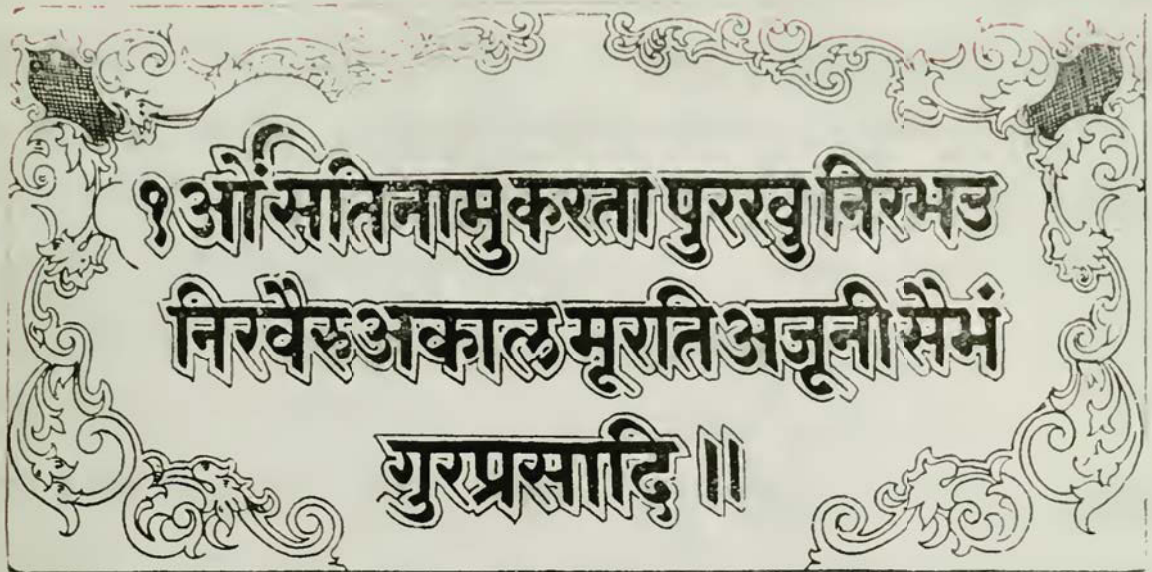 १ओंसतिनामु करता पुरखु निरभउ
निरवैरु अकाल मूरति अजूनी सैभं
गुरप्रसादि ॥